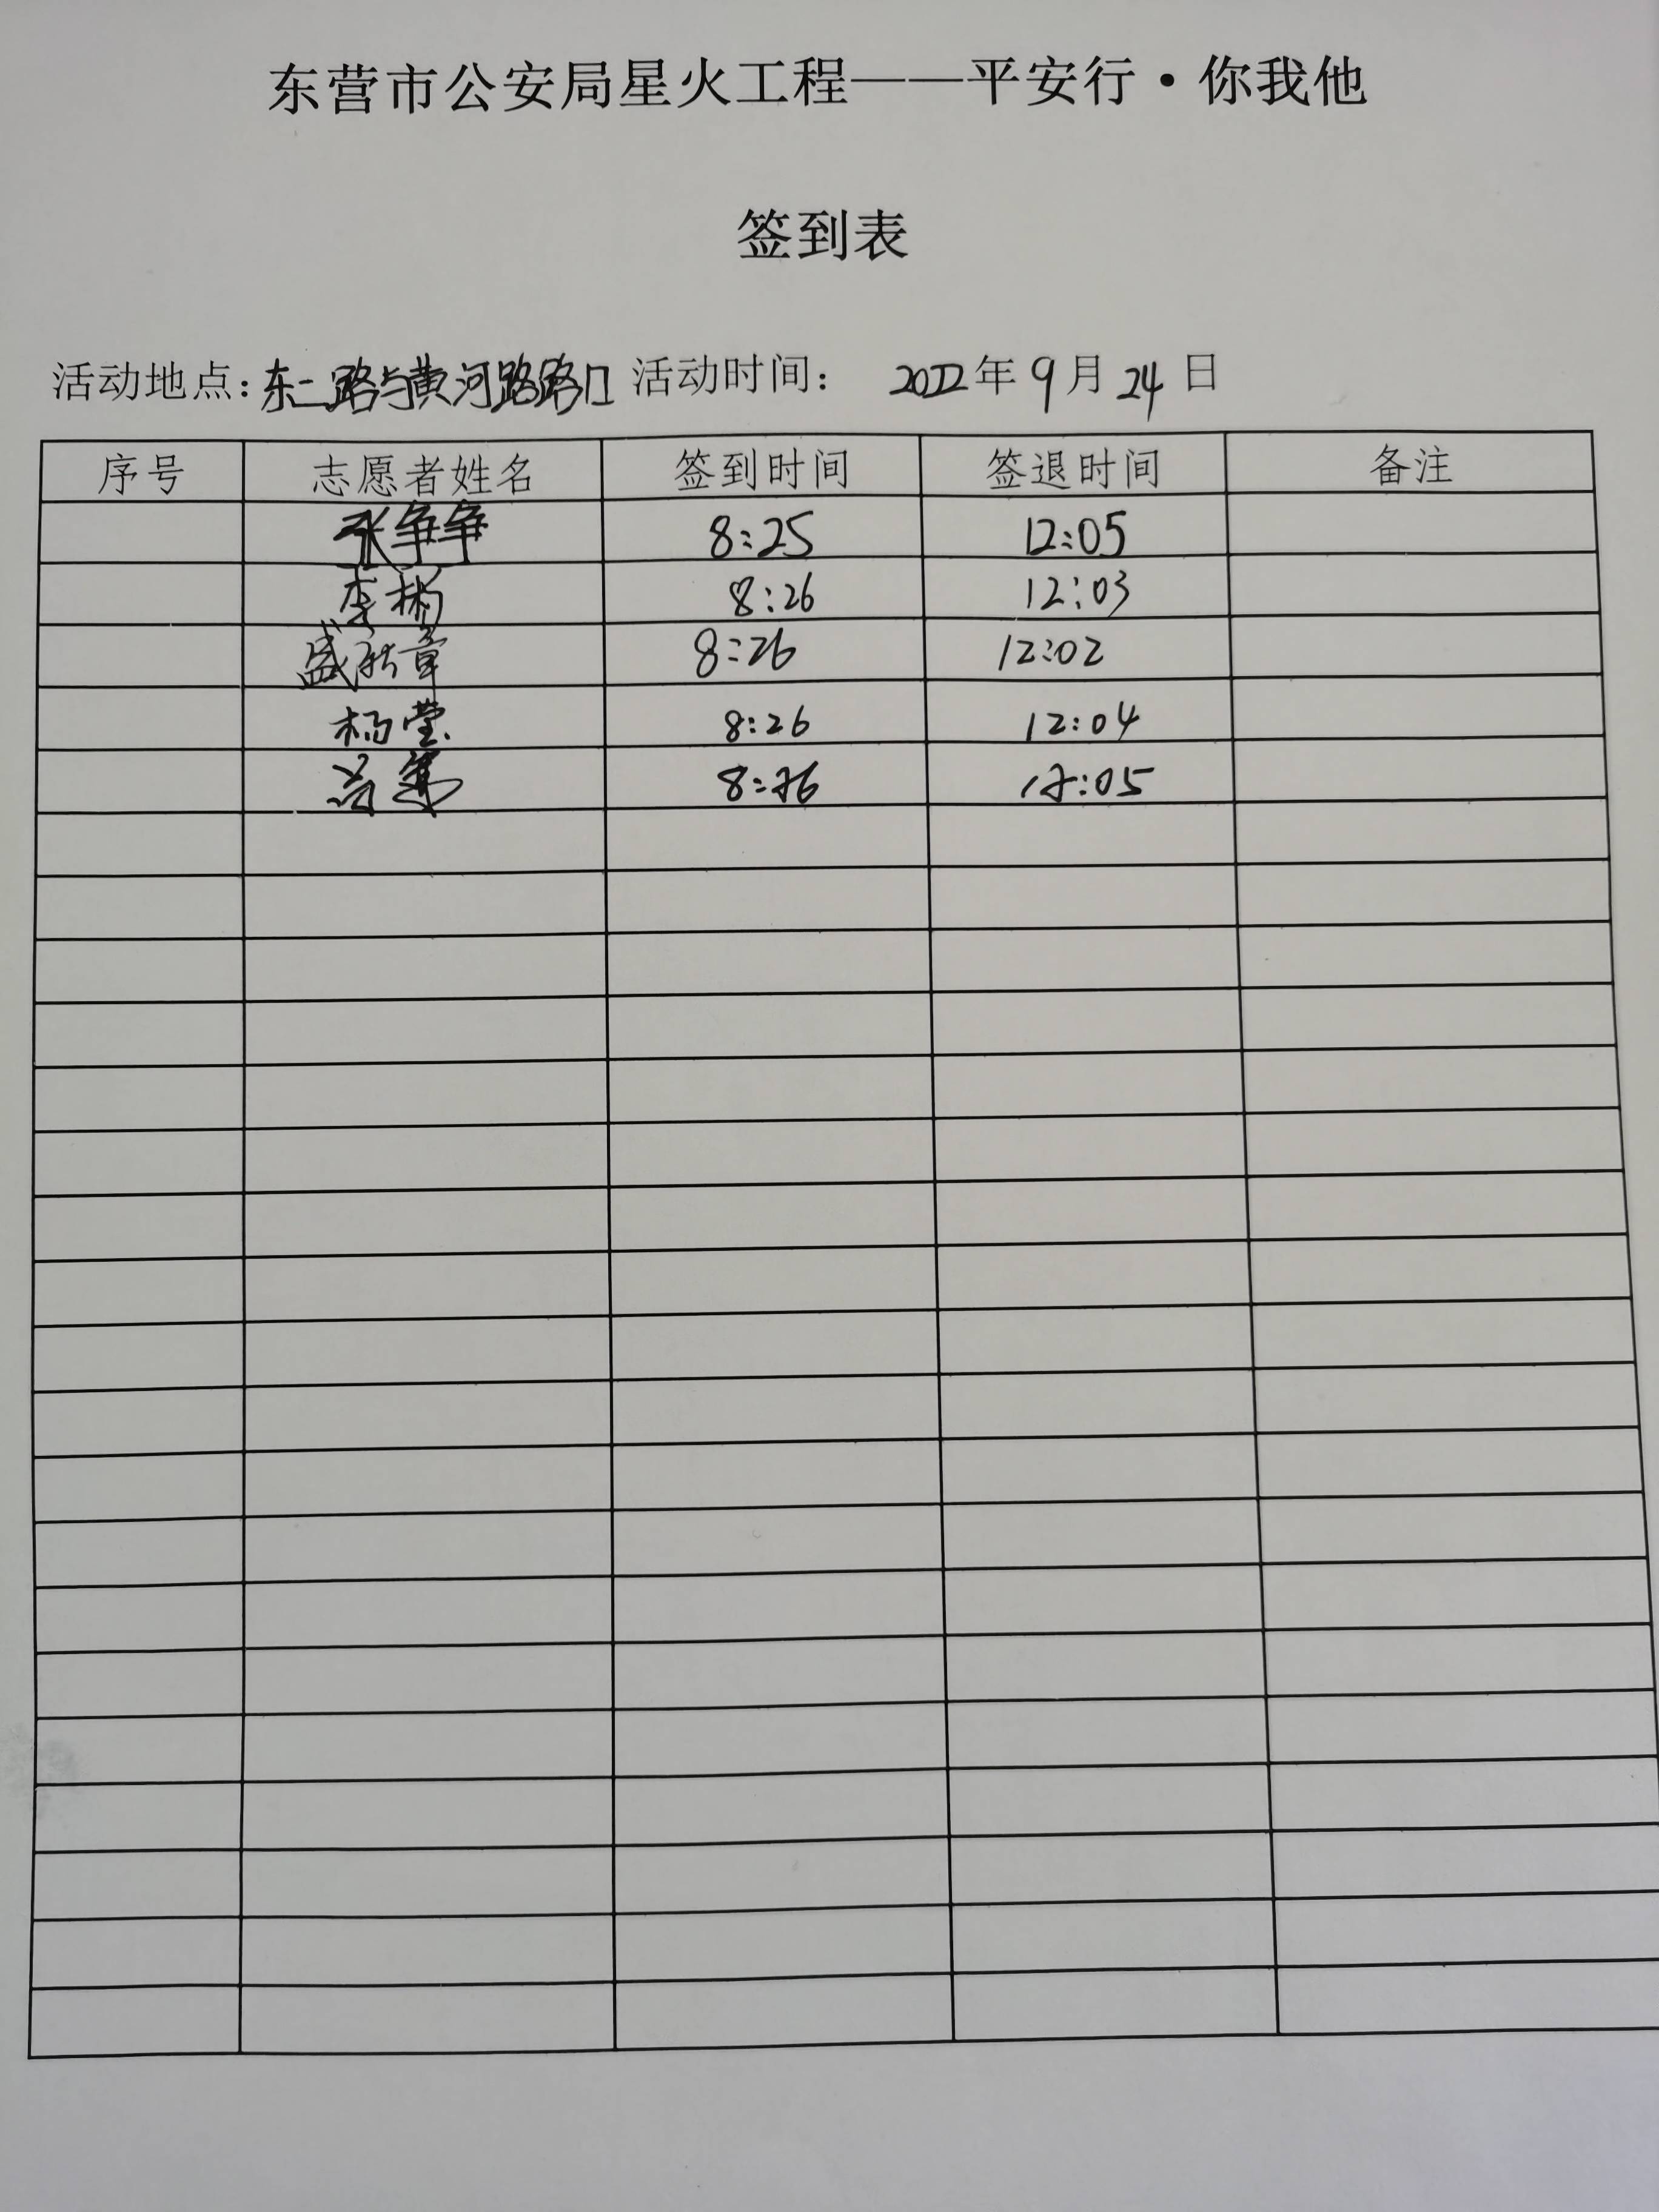 东营市公安局星火工程——平安行·你我他
签到表
活动地点：东二路与黄河路路口 活动时间： 2022年 9月 24日
序号 志愿者姓名 签到时间 签退时间 备注
张争争 8:25 12:05
李彬 8:26 12:03
盛章 8:26 12:02
杨莹 8:26 12:04
8:26 12:05